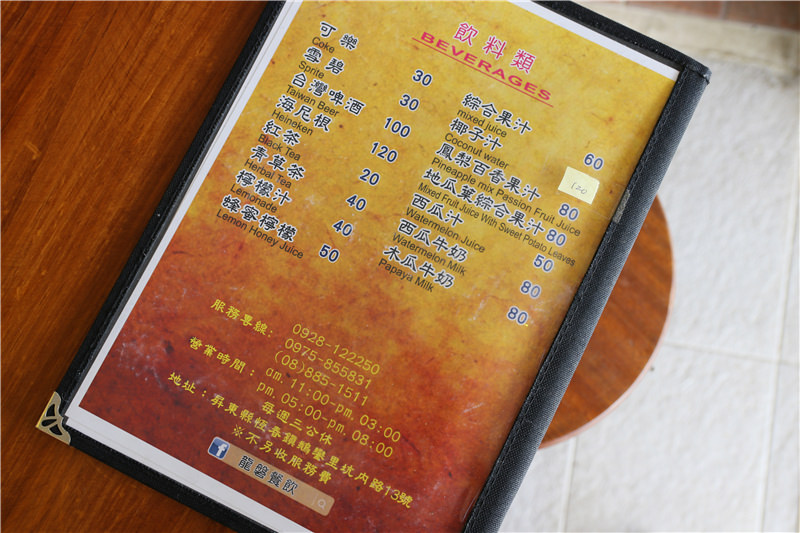 飲料類
BEVERAGES
可樂 30
Coke
雪碧 30
Sprite
台灣啤酒 100
Taiwan Beer
海尼根 120
Heineken
紅茶 20
Black Tea
青草茶 40
Herbal Tea
檸檬汁 40
Lemonade
蜂蜜檸檬 50
Lemon Honey Juice
綜合果汁 60
mixed juice
椰子汁 120
Coconut water
鳳梨百香果汁 80
Pineapple mix Passion Fruit Juice
地瓜葉綜合果汁 80
Mixed Fruit Juice With Sweet Potato Leaves
西瓜汁 50
Watermelon Juice
西瓜牛奶 80
Watermelon Milk
木瓜牛奶 80
Papaya Milk
服務專線: 0928-122250
0975-855831
(08)885-1511
營業時間: am.11:00-pm.03:00
pm.05:00-pm.08:00
每週三公休
地址:屏東縣恆春鎮鵝鑾里坑內路13號
※不另收服務費
f 龍磐餐飲